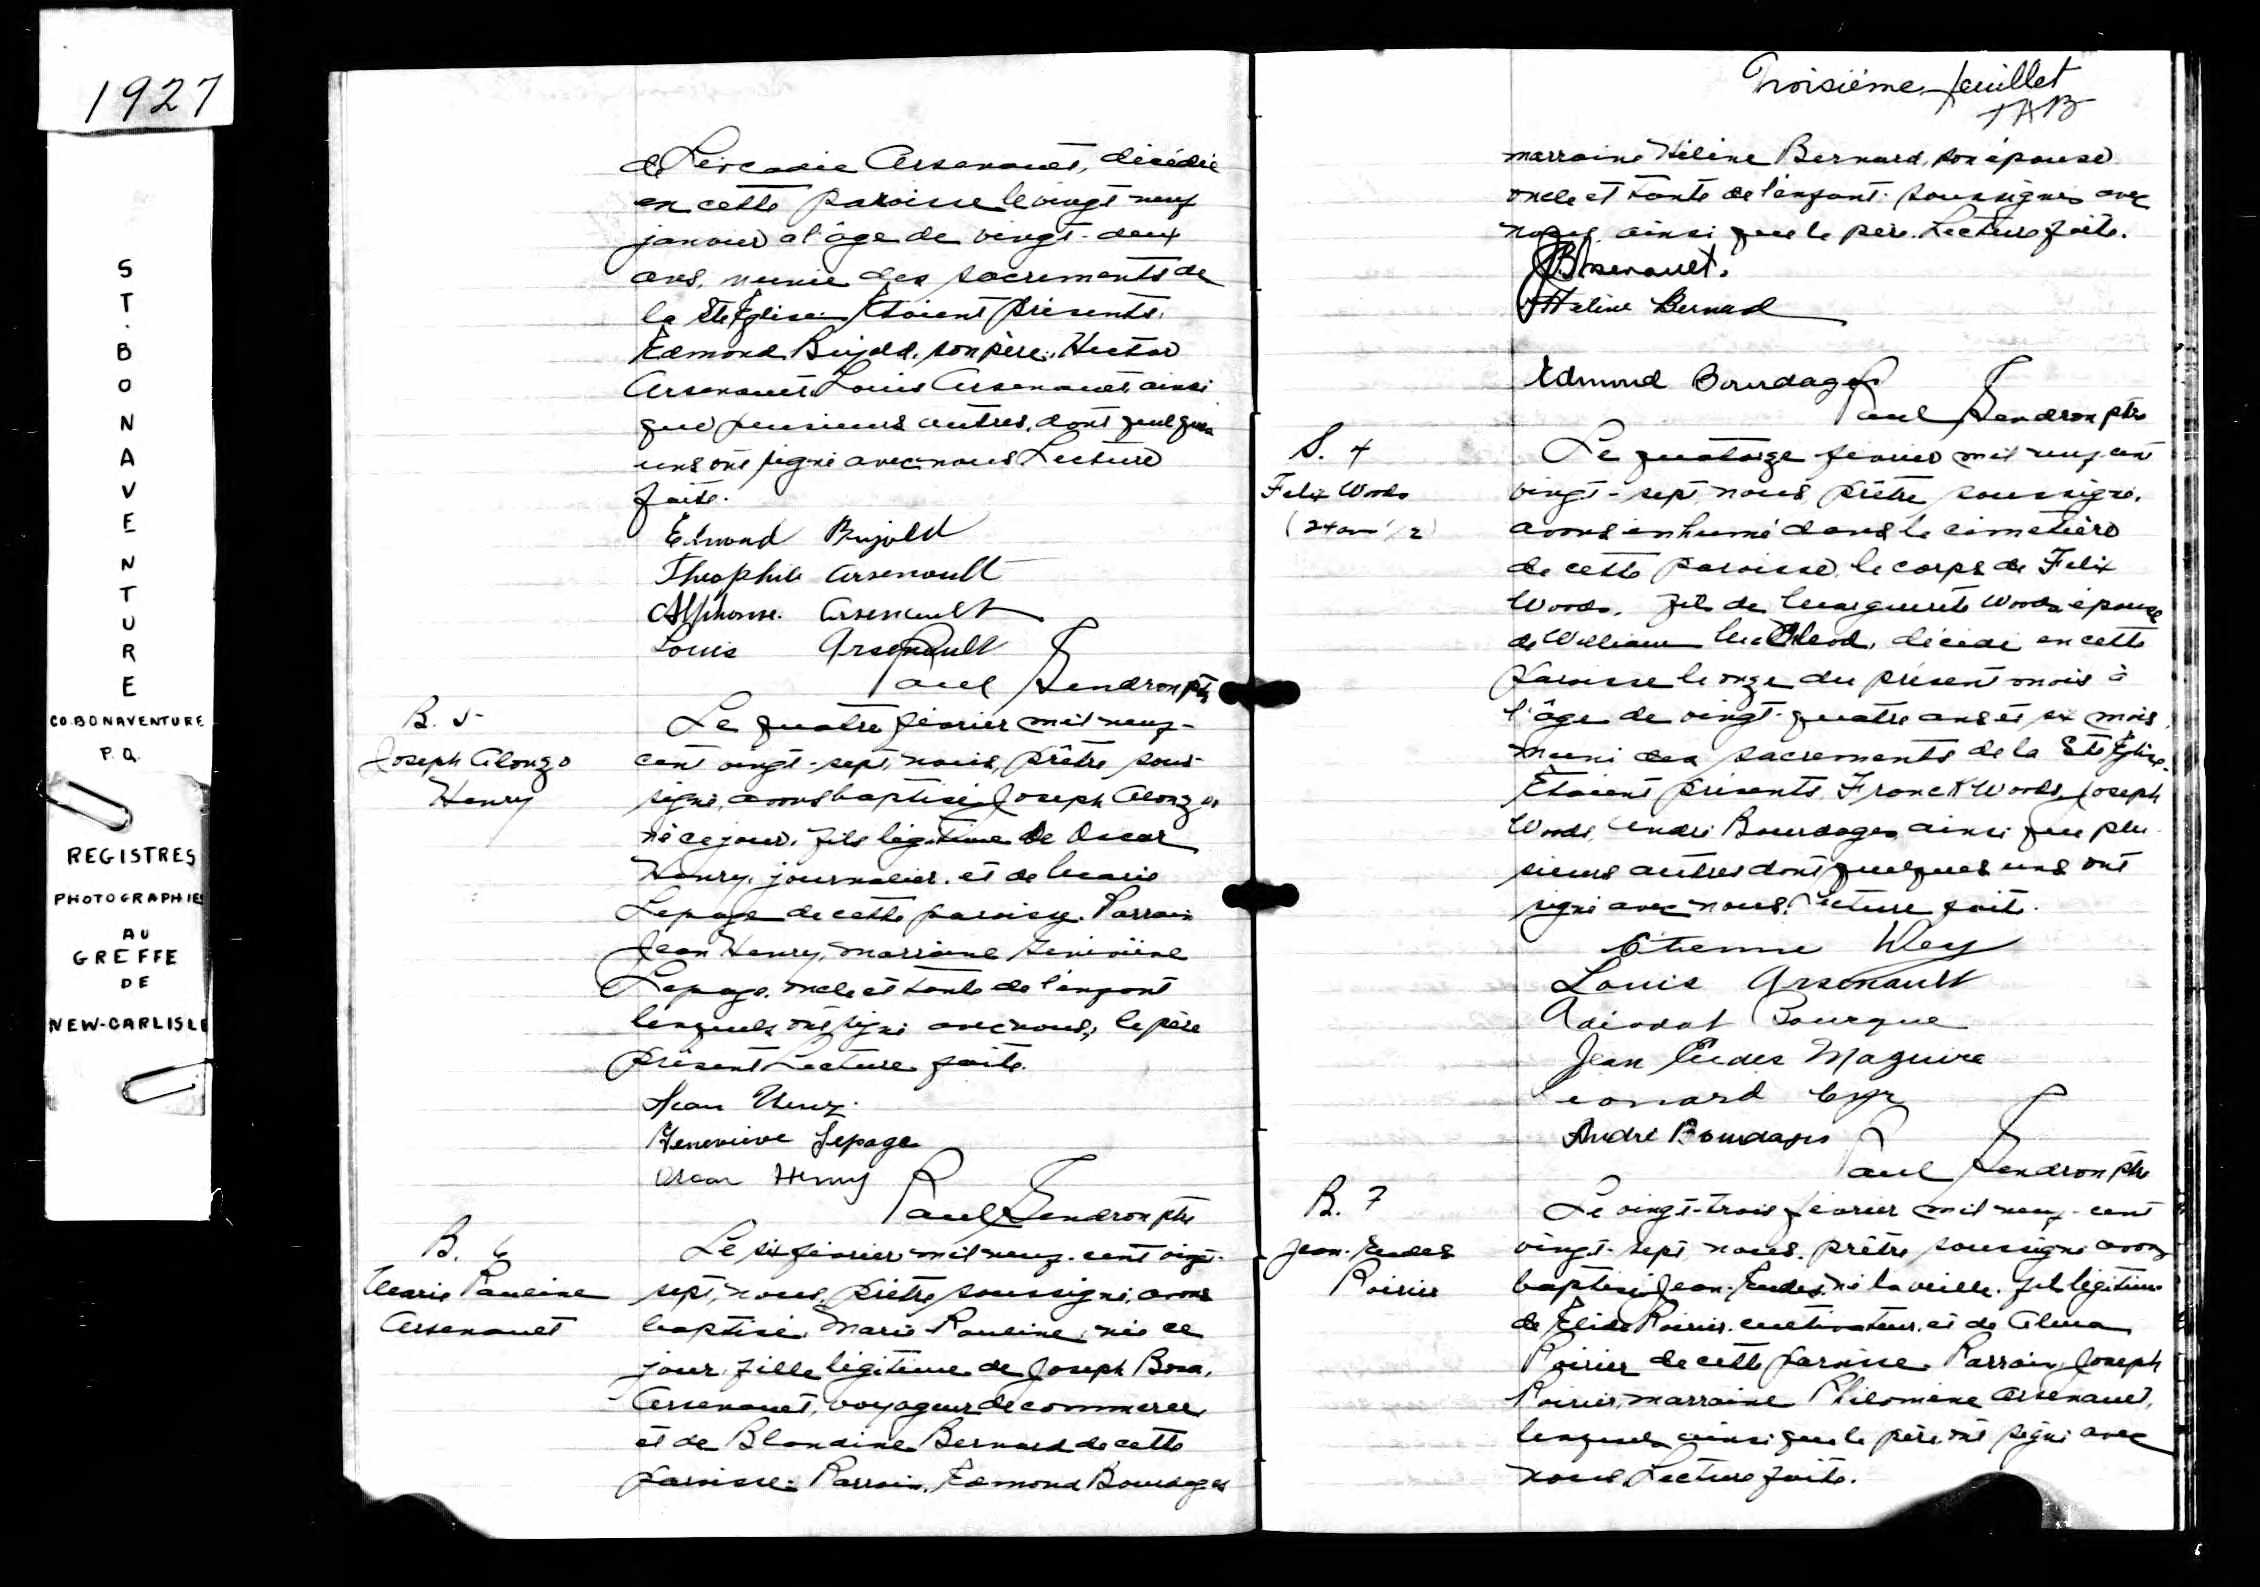 1927
ST. BONAVENTURE
CO. BONAVENTURE
P.Q.
REGISTRES
PHOTOGRAPHIES
AU
GREFFE
DE
NEW-CARLISLE
de Léocadie Arsenault, décédée
en cette paroisse le vingt-neuf
janvier à l'âge de vingt-deux
ans, munie des sacrements de
la Ste Église. Étaient présents,
Edmond Bujold, son père, Hector
Arsenault Louis Arsenault ainsi
que plusieurs autres, dont quelques
uns ont signé avec nous Lecture
faite.
Edmond Bujold
Theophile Arsenault
Alphonse Arsenault
Louis Arsenault
Paul Gendron ptre
B. 5
Joseph Alonzo
Henry
Le quatre février mil neuf-
cent vingt-sept, nous, prêtre sous-
signé, avons baptisé Joseph Alonzo
né ce jour, fils légitime de Oscar
Henry, journalier, et de Marie
Lepage de cette paroisse. Parrain
Jean Henry, marraine Geneviève
Lepage, oncle et tante de l'enfant
lesquels ont signé avec nous, le père
présent Lecture faite.
Jean Henry
Geneviève Lepage
Oscar Henry
Paul Gendron ptre
B. 6
Marie Pauline
Arsenault
Le six février mil neuf-cent vingt-
sept, nous, prêtre soussigné, avons
baptisé Marie Pauline, née ce
jour, fille légitime de Joseph Bona.
Arsenault, voyageur de commerce
et de Blandine Bernard de cette
paroisse. Parrain, Edmond Bourdages
Troisième feuillet
marraine Hélène Bernard, son épouse
oncle et tante de l'enfant soussignés avec
nous, ainsi que le père. Lecture faite.
JB Arsenault.
Hélène Bernard
Edmond Bourdages
Paul Gendron ptre
S. 4
Felix Woods
(24 ans 1/2)
Le quatorze février mil neuf cent
vingt-sept, nous, prêtre soussigné,
avons inhumé dans le cimetière
de cette paroisse, le corps de Felix
Woods, fils de Marguerite Woods épouse
de William McLeod, décédé en cette
paroisse le onze du présent mois à
l'âge de vingt-quatre ans et six mois,
muni des sacrements de la Ste Église.
Étaient présents, Franck Woods, Joseph
Woods, André Bourdages ainsi que plu-
sieurs autres dont quelques uns ont
signé avec nous. Lecture faite.
Étienne
Louis Arsenault
Adéodat Bourque
Jean Eudes Maguire
Leonard Cyr
André Bourdages
Paul Gendron ptre
B. 7
Jean-Eudes
Poirier
Le vingt-trois février mil neuf-cent
vingt-sept, nous, prêtre soussigné avons
baptisé Jean-Eudes, né la veille, fils légitime
de Poirier, cultivateur, et de Alma
Poirier de cette paroisse. Parrain, Joseph
Poirier, marraine Philomène Arsenault,
lesquels ainsi que le père ont signé avec
nous Lecture faite.